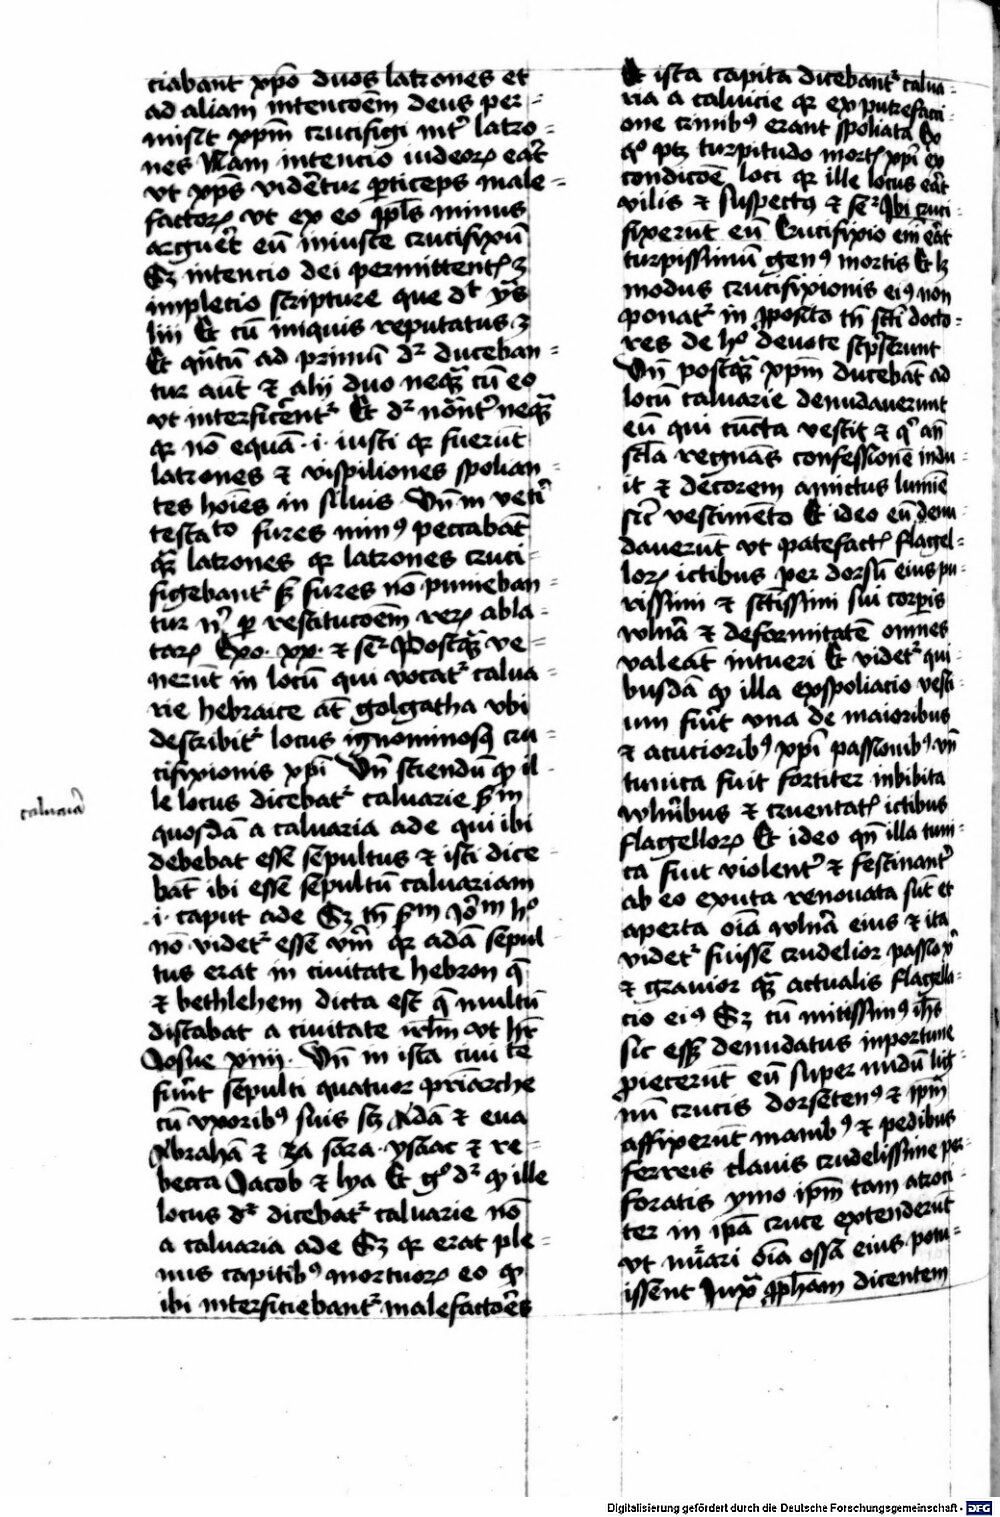 ciabant xpo duos latrones et
ad aliam intencoem deus per-
misit xpm crucifigi int latro-
nes Nam intencio iudeor erat
vt xps videtur pticeps male-
factor vt ex eo ipls minus
arguert eu iniuste crucifixu
Sz intencio dei permittent z
impletio scripture que dt ys
liii Et cu iniquis reputatus z
Et qntu ad primu dr duceban-
tur aut et alij duo neqz cu eo
vt interficerent Et dr notant neqz
qr no equa .i. iusti qr fuerut
latrones et vispiliones spolian-
tes hoies in siluis Vn in veti
testato fures min9 peccabat
qz latrones qr latrones cruci-
figebant s fures no punieban-
tur n p restitucoem rer abla-
tar Exo. xx. et ser Postqz ve-
nerut in locu qui vocat calua-
rie hebraice at golgatha vbi
describit locus ignominos9 cru-
cifixionis xpi Vn sciendu qp il-
le locus dicebat caluarie sm
quosda a caluaria ade qui ibi
debebat esse sepultus et isti dice-
bat ibi esse sepultu caluariam
.i. caput ade Sz tn sm Jom ho
no videt esse vm qr ada sepul
tus erat in ciuitate hebron q
et bethlehem dicta est q multu
distabat a ciuitate irlm vt ht
Josue xiiii. Vn in ista ciuite
fuert sepulti quatuor priarche
cu vxorib9 suis sz Ada et eua
Abraha et za sara. ysaac et re-
becca Jacob et lya Et go dr qp ille
locus dr dicebat caluarie no
a caluaria ade Sz qr erat ple-
nus capitib9 mortuor eo qp
ibi interficiebant malefactores
caluaria
Et ista capita dicebant calua-
ria a caluicie qr ex putrefacti-
one crinib9 erant spoliata Ex
go ptz turpitudo mort xpi ex
condicoe loci qr ille locus erat
vilis et suspect9 et ser Ibi cruci-
fixerut eu Crucifixio em erat
turpissimu gen9 mortis Et lz
modus crucifixionis ei9 non
ponat in pposito tn sci docto-
res de ho deuote scpserunt
Vn postqz xpm ducebat ad
locu caluarie denudauerunt
eu qui cuncta vestit et q an
scla regnas confessione indu-
it et decorem amictus lumie
sic vestimeto Et ideo eu denu-
dauerut vt patefact flagel-
lor ictibus per dorsu eius pu-
rissimi et sctissimi sui corpis
vlna et deformitate omnes
valeat intueri Et videt qui-
busda qp illa exspoliacio vesti-
um fuit vna de maioribus
et acuciorib9 xpi passionib9 vn
tunica fuit fortiter inbibita
vlnibus et cruentat ictibus
flagellor Et ideo qn illa tuni-
ca fuit violent et festinant
ab eo exuta renouata sut et
aperta oia vlna eius et ita
videt fuisse crudelior passio
et grauior qz actualis flagella-
cio ei9 Sz cu mitissim9 ihs
sic esset denudatus inportune
piecerut eu super nudu lig-
nu crucis dorseten9 et ipm
affixerut manib9 et pedibus
ferreis clauis crudelissime per-
foratis ymo ipm tam atroci-
ter in ipa cruce extenderut
vt nuari oia ossa eius potu-
issent Juxa ppham dicentem
Digitalisierung gefördert durch die Deutsche Forschungsgemeinschaft - DFG